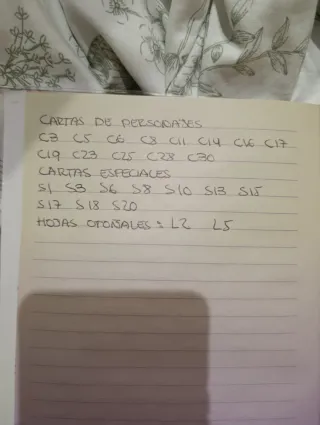 CARTAS DE PERSONAJES
C3 C5 C6 C8 C11 C14 C16 C17
C19 C23 C25 C28 C30
CARTAS ESPECIALES
S1 S3 S6 S8 S10 S13 S15
S17 S18 S20
HOJAS OTOÑALES = L2 L5